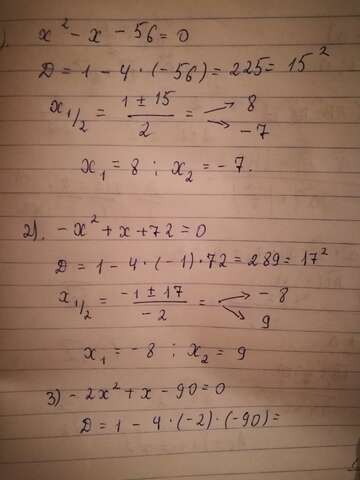 ). x² - x - 56 = 0
D = 1 - 4 · (-56) = 225 = 15²
x₁/₂ = (1 ± 15)/2 = → 8
→ -7
x₁ = 8 ; x₂ = -7.
2). -x² + x + 72 = 0
D = 1 - 4 · (-1) · 72 = 289 = 17²
x₁/₂ = (-1 ± 17)/-2 = → -8
→ 9
x₁ = -8 ; x₂ = 9
3) -2x² + x - 90 = 0
D = 1 - 4 · (-2) · (-90) =